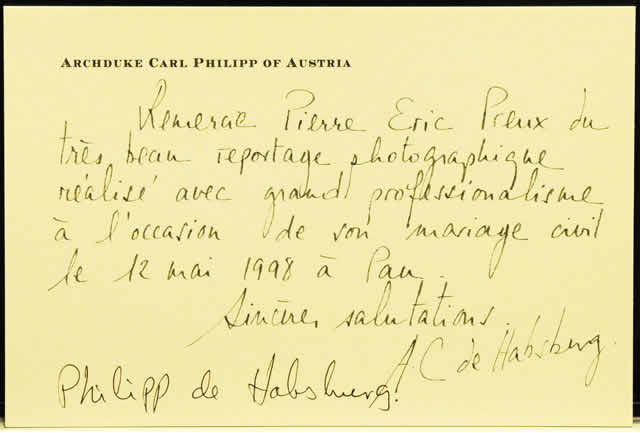 ARCHDUKE CARL PHILIPP OF AUSTRIA
Remercie Pierre Eric Preux du
très beau reportage photographique
réalisé avec grand professionalisme
à l'occasion de son mariage civil
le 12 mai 1998 à Pau.
Sincères salutations.
A.C de Habsburg.
Philipp de Habsburg.